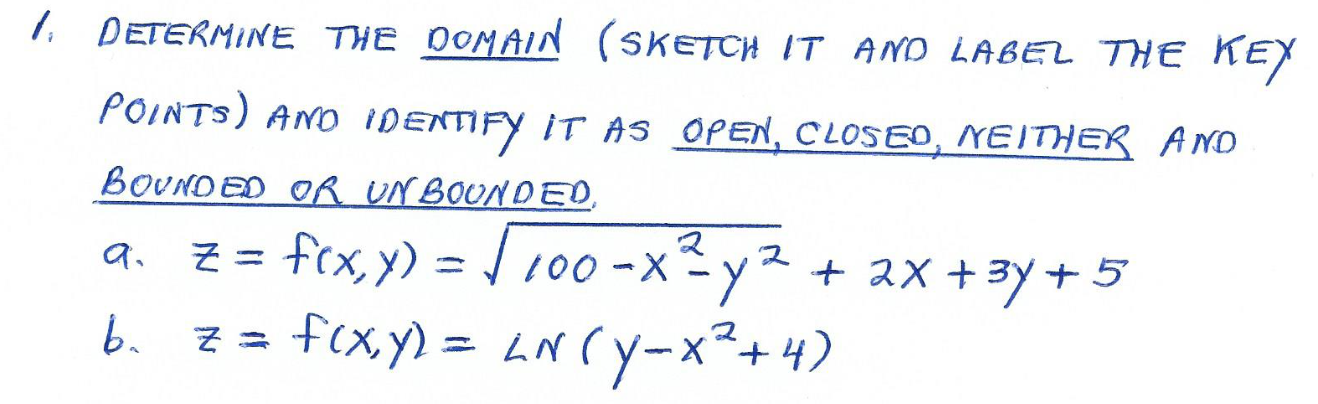 1. DETERMINE THE DOMAIN (SKETCH IT AND LABEL THE KEY
POINTS) AND IDENTIFY IT AS OPEN, CLOSED, NEITHER AND
BOUNDED OR UNBOUNDED.
a. z = f(x,y) = √(100-x²-y²) + 2x + 3y + 5
b. z = f(x,y) = LN(y-x²+4)